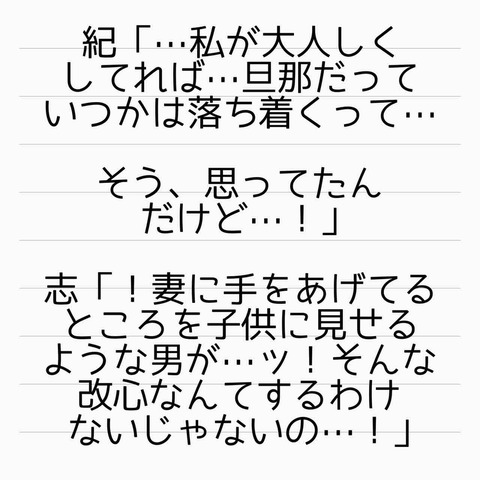 紀「…私が大人しく
してれば…旦那だって
いつかは落ち着くって…
そう、思ってたん
だけど…！」
志「！妻に手をあげてる
ところを子供に見せる
ような男が…ッ！そんな
改心なんてするわけ
ないじゃないの…！」